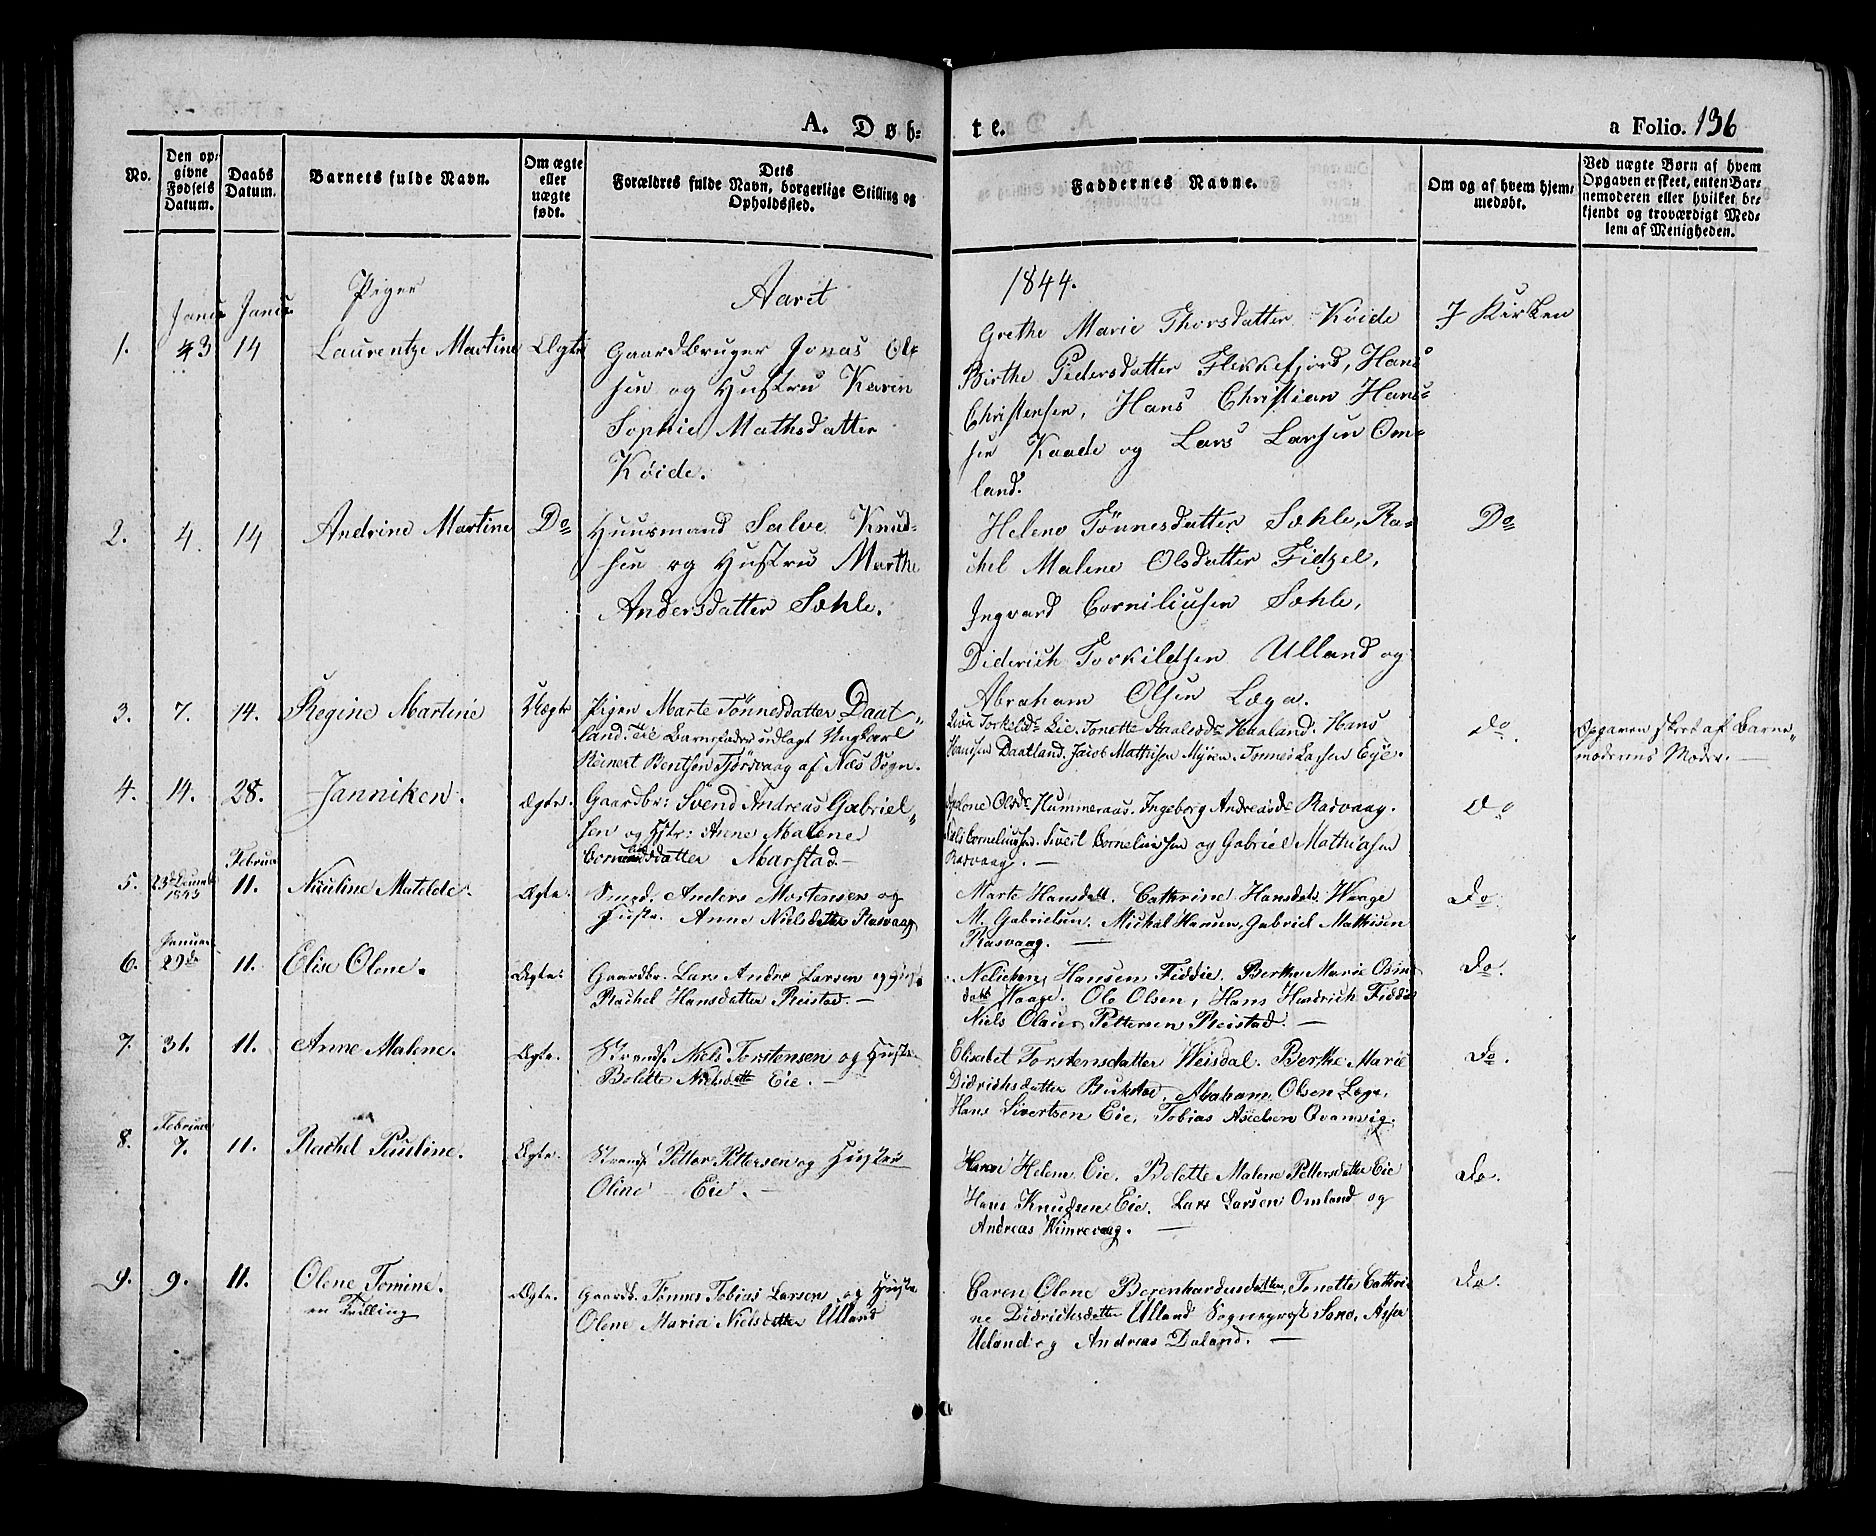 A. Døb-
te.
a Folio. 136
No.
Den op-
givne
Fødsels
Datum.
Daabs
Datum.
Barnets fulde Navn.
Om ægte
eller
uægte
født.
Dets
Forældres fulde Navn, borgerlige Stilling og
Opholdssted.
Faddernes Navne.
Om og af hvem hjem-
medøbt.
Ved uægte Børn af hvem
Opgaven er skeet, enten Bar-
nemoderen eller hvilket be-
kjendt og troværdigt Med-
lem af Menigheden.
Piger
Aaret
1844.
Janu
Janu
1.
3
14
Laurentze Martine
Ægte
Gaardbruger Jonas Ol-
sen og Hustru Karin
Sophie Mathsdatter
Køide.
Grethe Marie Thorsdatter Køide
Birthe Pedersdatter Flekkefjord, Hans
Christensen, Hans Christian Han-
sen Kaade og Lars Larsen Om-
land.
I Kirken
2.
4.
14
Andrine Martine
Do
Huusmand Salve Knud-
sen og Hustru Marthe
Andersdatter Sæhle.
Helene Tønnesdatter Sæhle, Ra-
chel Malene Olsdatter Fidzel,
Ingvard Corniliusen Sæhle,
Diderich Torkildsen Ulland og
Abraham Olsen Læga.
Do
3.
7.
14.
Regine Martine
Uægte
Pigen Marte Tønnesdatter Daat-
land. Til Barnefader udlagt Ungkarl
Reinert Bentsen Tjørsvaag af Næs Sogn.
Torkildsdr Eie. Tonette Staalesdr Haaland. Hans
Hansen Daatland. Jacob Mathisen Myren. Tønnes Larsen Eije.
do.
Opgaven skeet af Barne-
moderens Moder.
4.
14.
28.
Janniken.
Ægte.
Gaardbr: Svend Andreas Gabriel-
sen og Hstr: Anne Malene
Corneliusdatter Marstad.
Olsdr Hummeraas. Ingeborg Andreasdr Rasvaag.
Corneliussen. Sivert Corneliussen og Gabriel Mathiasen
Rasvaag.
do
Februar
5.
23d Decembr
1843
11.
Nuuline Matilde.
Ægte.
Smed. Anders Mortensen og
Hustr. Anne Nielsdatter Rasvaag
Marte Hansdatt. Cathrine Hansdatt. Waage
M. Gabrielsen. Michal Hansen, Gabriel Mathisen
Rasvaag.
Do.
Januar
6.
29de
11.
Elise Olene.
Ægte.
Gaardbr. Lars Andr. Larsen og Hust
Rachel Hansdatter Reistad.
Hansen Fiddie. Berthe Marie
datt Waage. Ole Olsen, Hans Hendrich Fiddie
Niels Olaus Pettersen Reistad.
Do.
7.
31.
11.
Anne Malene.
Ægte.
Strands. Niels Torstensen og Hustr.
Bolette Nielsdatt Eie.
Elisabet Torstensdatter Weisdal. Berthe Marie
Didrichsdatter Bukstad. Abraham Olsen Lege.
Hans Sivertsen Eie, Tobias Aselsen Qvanvig.
Do.
Februar
8.
7.
11.
Rachel Pauline.
Ægte.
Strands Petter Pettersen og Hustru
Oline Eie.
Helene Eie. Bolette Malene Pettersdatter Eie
Hans Knudsen Eie. Lars Larsen Omland og
Andreas
Do.
9.
9.
11.
Olene Tomine.
en Tvilling
Ægte.
Gaardb. Tønnes Tobias Larsen og Hustr
Olene Maria Nielsdatter Ulland
Caren Olene Berenhardusdatter, Tonette Cathri-
ne Didrichsdatter Ulland Sogneprest Aase
Ueland og Andreas Daland.
Do.